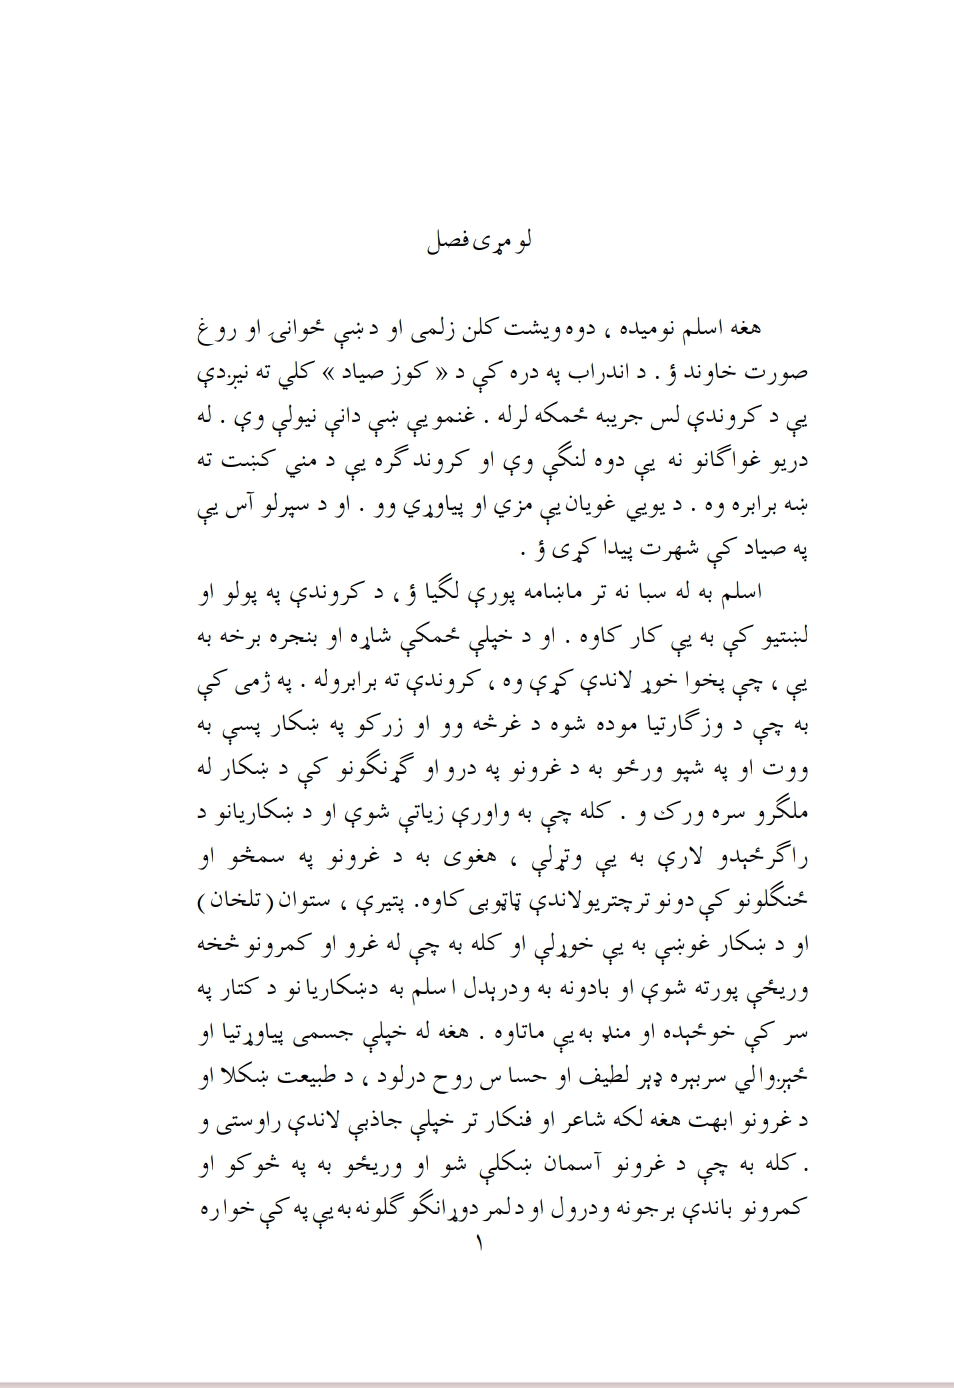 لو مړی فصل
هغه اسلم نومیده ، دوه ویشت کلن زلمی او د ښې ځوانۍ او روغ
صورت خاوند ؤ . د اندراب په دره کې د « کوز صیاد » کلي ته نیږدې
یې د کروندې لس جریبه ځمکه لرله . غنمو یې ښې دانې نیولې وې . له
دریو غواګانو نه یې دوه لنګې وې او کروند ګره یې د مني کښت ته
ښه برابره وه . د یویي غویان یې مزي او پیاوړي وو . او د سپرلو آس یې
په صیاد کې شهرت پیدا کړی ؤ .
اسلم به له سبا نه تر ماښامه پورې لګیا ؤ ، د کروندې په پولو او
لښتیو کې به یې کار کاوه . او د خپلې ځمکې شاړه او بنجره برخه به
یې ، چې پخوا خوړ لاندې کړې وه ، کروندې ته برابروله . په ژمی کې
به چې د وزګارتیا موده شوه د غرڅه وو او زرکو په ښکار پسې به
ووت او په شپو ورځو به د غرونو په درو او ګړنګونو کې د ښکار له
ملګرو سره ورک و . کله چې به واورې زیاتې شوې او د ښکاریانو د
راګرځېدو لارې به یې وتړلې ، هغوی به د غرونو په سمڅو او
ځنګلونو کې دونو ترچتریولاندې ټاټوبی کاوه. پتیرې ، ستوان ( تلخان )
او د ښکار غوښې به یې خوړلې او کله به چې له غرو او کمرونو څخه
وریځې پورته شوې او بادونه به ودرېدل اسلم به دښکاریانو د کتار په
سر کې خوځېده او منډ به یې ماتاوه . هغه له خپلې جسمی پیاوړتیا او
ځېږوالي سربېره ډېر لطیف او حساس روح درلود ، د طبیعت ښکلا او
د غرونو ابهت هغه لکه شاعر او فنکار تر خپلې جاذبې لاندې راوستی و
. کله به چې د غرونو آسمان ښکلې شو او وریځو به په څوکو او
کمرونو باندې برجونه ودرول او د لمر دوړانګو ګلونه به یې په کې خواره
۱